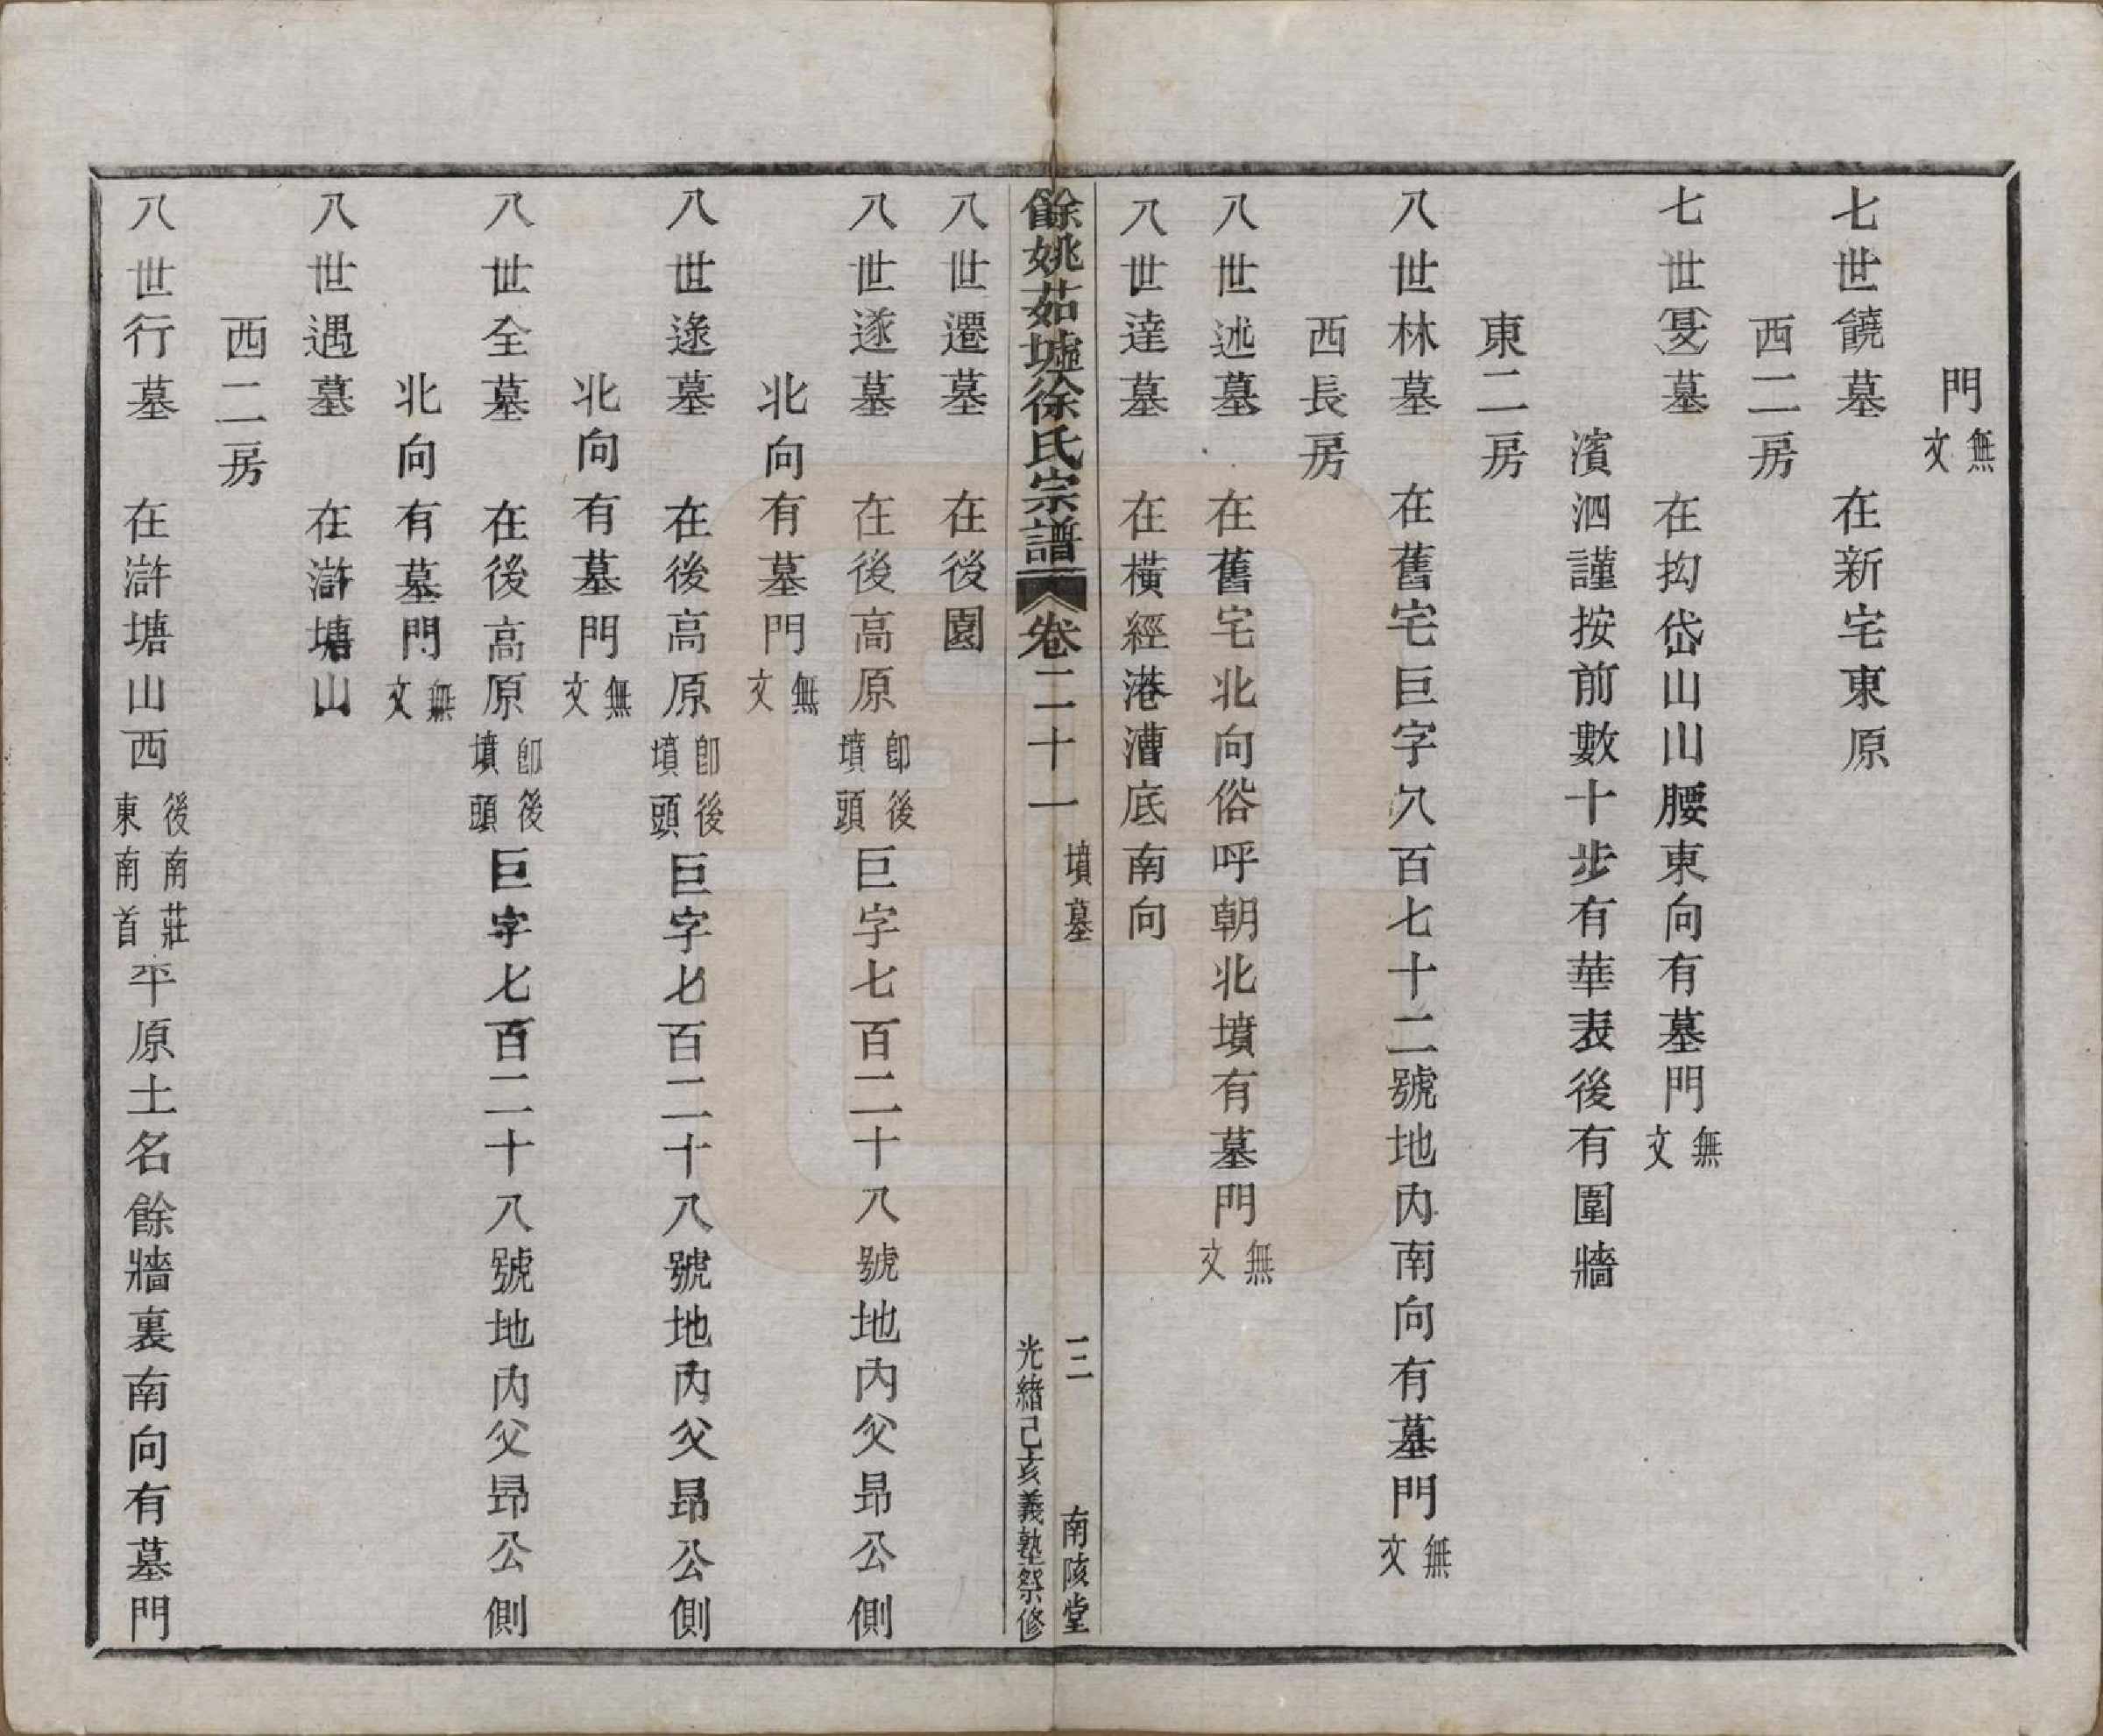 門無文
七世饒墓　在新宅東原
西二房
七世㚆墓　在抝岱山山腰東向有墓門無文
濱泗謹按前數十步有華表後有圍牆
東二房
八世林墓　在舊宅巨字八百七十二號地內南向有墓門無文
西長房
八世述墓　在舊宅北向俗呼朝北墳有墓門無文
八世達墓　在橫經港漕底南向
餘姚茹墟徐氏宗譜　卷二十一　墳墓　三　南陔堂
光緒己亥義塾祭修
八世遷墓　在後園
八世遂墓　在後高原卽後墳頭巨字七百二十八號地內父昻公側
北向有墓門無文
八世逺墓　在後高原卽後墳頭巨字七百二十八號地內父昻公側
北向有墓門無文
八世全墓　在後高原卽後墳頭巨字七百二十八號地內父昻公側
北向有墓門無文
八世遇墓　在滸塘山
西二房
八世行墓　在滸塘山西後南莊東南首平原土名餘牆裏南向有墓門